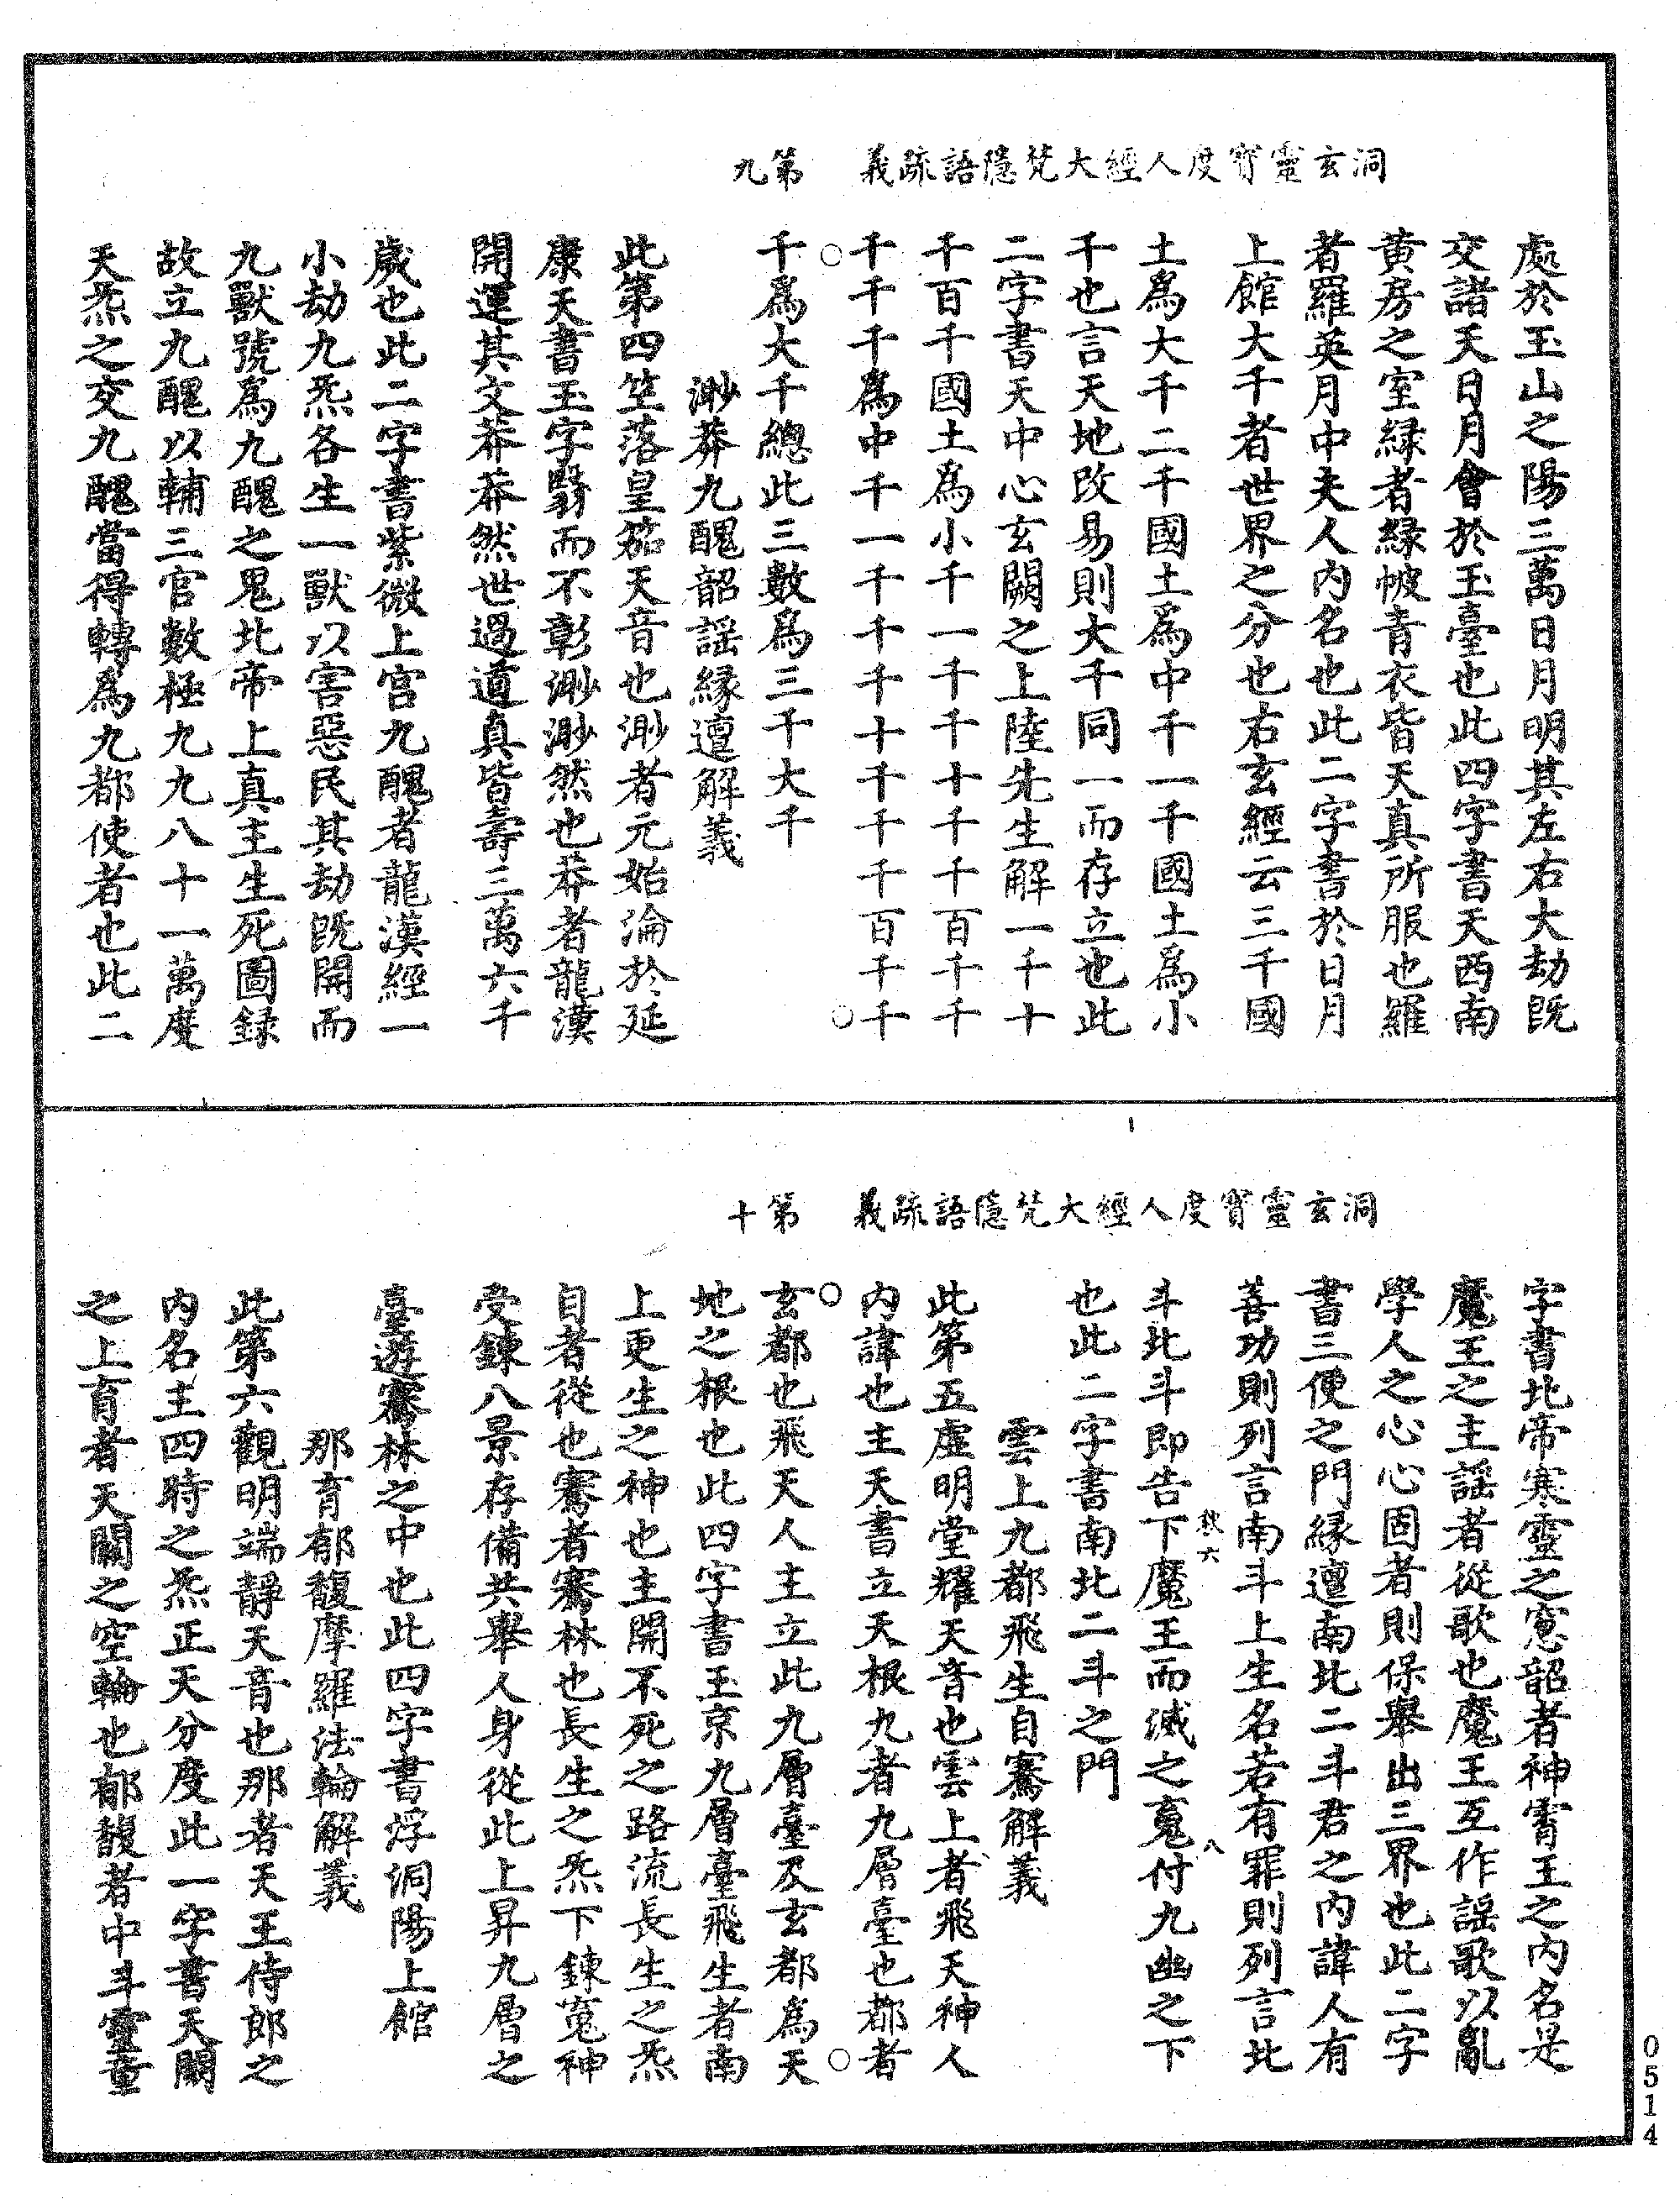 洞玄靈寳度人經大梵隱語疏義　第九
處於玉山之陽三萬日月明其左右大劫既
交諸天日月會於玉臺也此四字書天西南
黄房之室緑者緑帔青衣皆天真所服也羅
者羅英月中夫人内名也此二字書於日月
上館大千者世界之分也右玄經云三千國
土爲大千二千國土爲中千一千國土爲小
千也言天地改易則大千同一而存立也此
二字書天中心玄闕之上陸先生解一千十
千百千國土爲小千一千千十千千百千千
千千千爲中千一千千千十千千千百千千
千爲大千總此三數爲三千大千
渺莽九醜韶謡縁邅解義
此第四笁落皇笳天音也渺者元始淪於延
康天書玉字翳而不彰渺渺然也莽者龍漢
開運其文莽莽然世過道真皆壽三萬六千
歲也此二字書紫微上宫九醜者龍漢經一
小劫九炁各生一獸以害惡民其劫既開而
九獸號爲九醜之鬼北帝上真主生死圖録
故立九醜以輔三官數極九九八十一萬度
天炁之交九醜當得轉爲九都使者也此二
洞玄靈寳度人經大梵隱語疏義　第十
字書北帝寒靈之窓韶者神霄王之内名是
魔王之主謡者從歌也魔王互作謡歌以亂
學人之心心固者則保舉出三界也此二字
書三便之門縁邅南北二斗君之内諱人有
善功則列言南斗上生名若有罪則列言北
斗北斗即告下魔王而滅之䰟付九幽之下
也此二字書南北二斗之門
雲上九都飛生自騫解義
此第五虛明堂耀天音也雲上者飛天神人
内諱也主天書立天根九者九層臺也都者
玄都也飛天人主立此九層臺及玄都爲天
地之根也此四字書玉京九層臺飛生者南
上更生之神也主開不死之路流長生之炁
自者從也騫者騫林也長生之炁下鍊䰟神
受鍊八景存備共舉人身從此上昇九層之
臺遊騫林之中也此四字書浮洞陽上館
那育郁馥摩羅法輪解義
此第六觀明端靜天音也那者天王侍郎之
内名主四時之炁正天分度此一字書天關
之上育者天關之空輪也郁馥者中斗靈童
六
八
0514